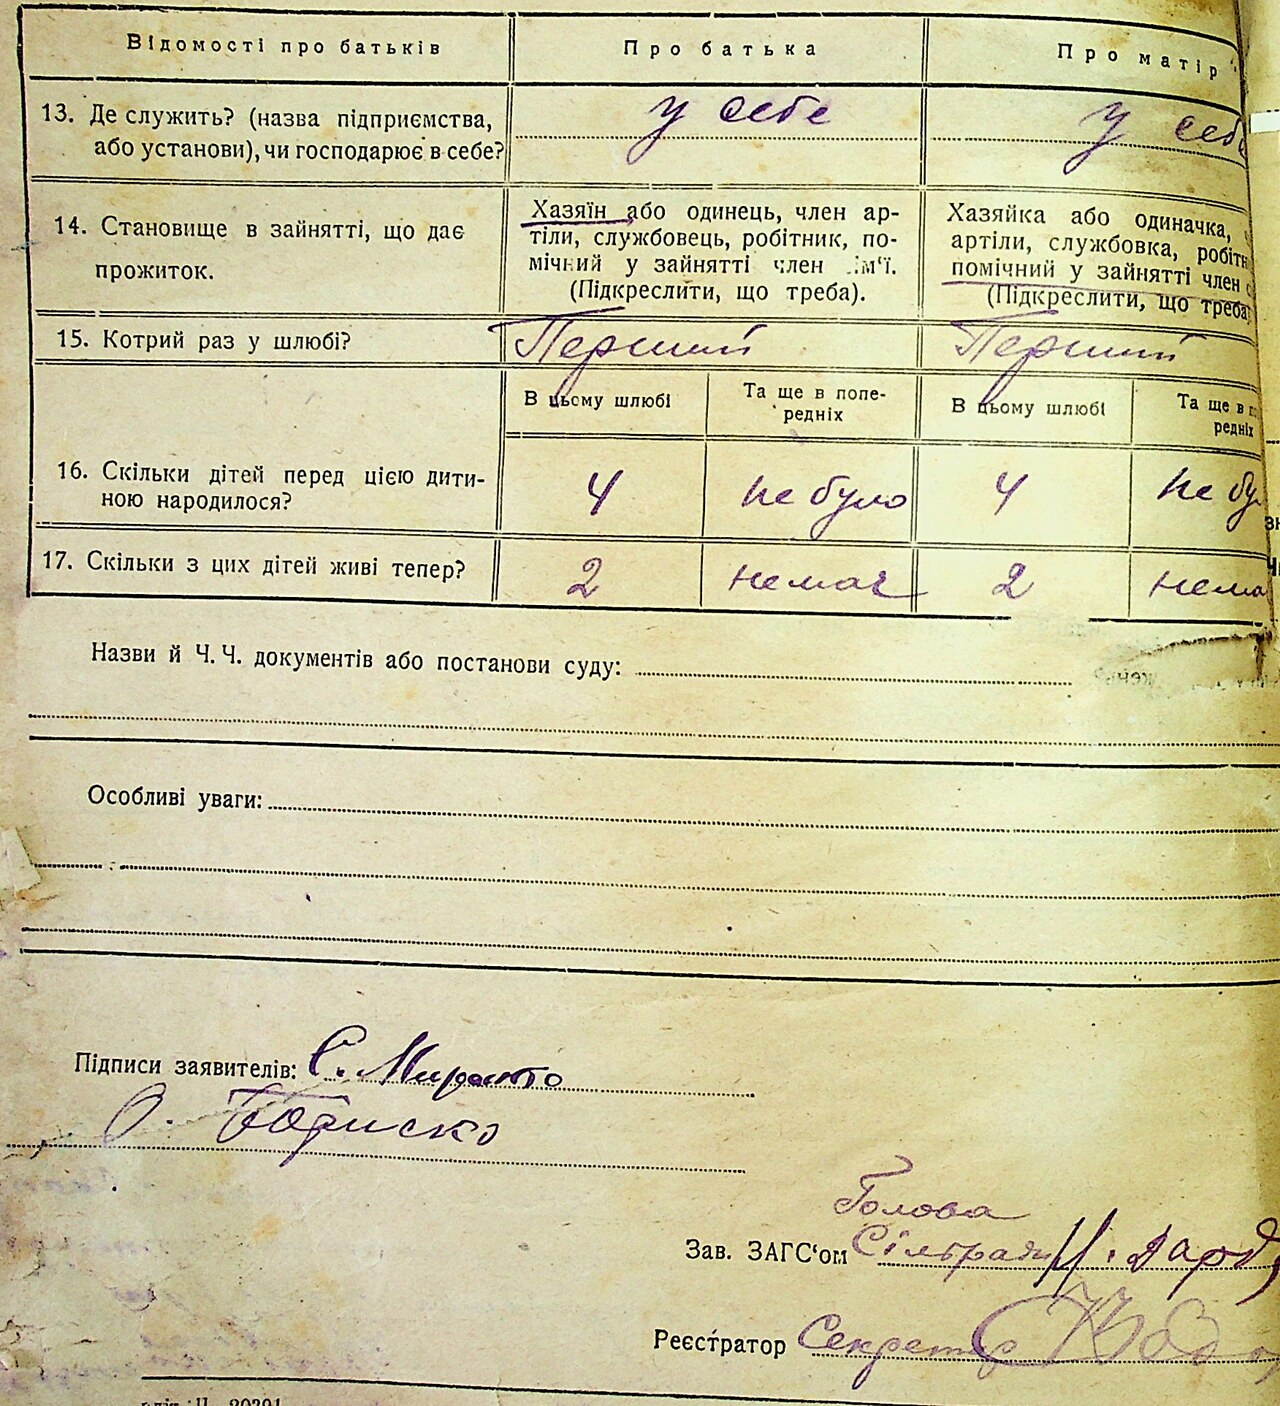 Відомості про батьків Про батька Про матір
13. Де служить? (назва підприємства, у себе у себе
або установи), чи господарює в себе?
14. Становище в зайнятті, що дає
прожиток.
Хазяїн або одинець, член ар-
тіли, службовець, робітник, по-
мічний у зайнятті член сім'ї.
(Підкреслити, що треба).
Хазяйка або одиначка,
артіли, службовка, робітн
помічний у зайнятті член с
(Підкреслити, що треба)
15. Котрий раз у шлюбі? Перший Перший
В цьому шлюбі Та ще в попе- В цьому шлюбі Та ще в по
редніх редніх
16. Скільки дітей перед цією дити- 4 не було 4 не бу
ною народилося?
17. Скільки з цих дітей живі тепер? 2 немає 2 нема
Назви й Ч. Ч. документів або постанови суду:
Особливі уваги:
Підписи заявителів: С.
О. Бориско
Голова
Зав. ЗАГС'ом Сільради
Реєстратор Секретар